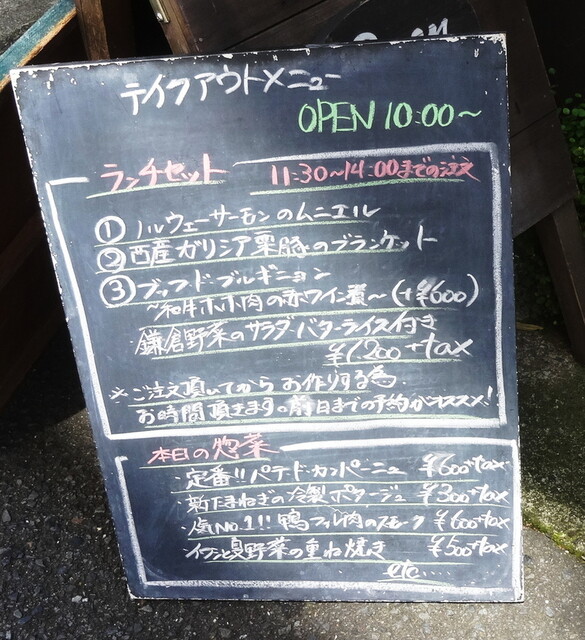 テイクアウトメニュー
OPEN 10:00~
ランチセット 11:30~14:00までの注文
① ノルウェーサーモンのムニエル
② 西産ガリシア栗豚のブランケット
③ ブッフ ド ブルギニョン
~和牛ホホ肉の赤ワイン煮~ (+¥600)
鎌倉野菜のサラダ・バターライス付き
¥1,200+tax
※ご注文頂いてからお作りする為
お時間頂きます。前日までの予約がオススメ!
本日の惣菜
・定番!! パテドカンパーニュ ¥600+tax
・新たまねぎの冷製ポタージュ ¥300+tax
・人気No.1!! 鴨フィレ肉のスモーク ¥600+tax
・イワシと夏野菜の重ね焼き ¥500+tax
etc....